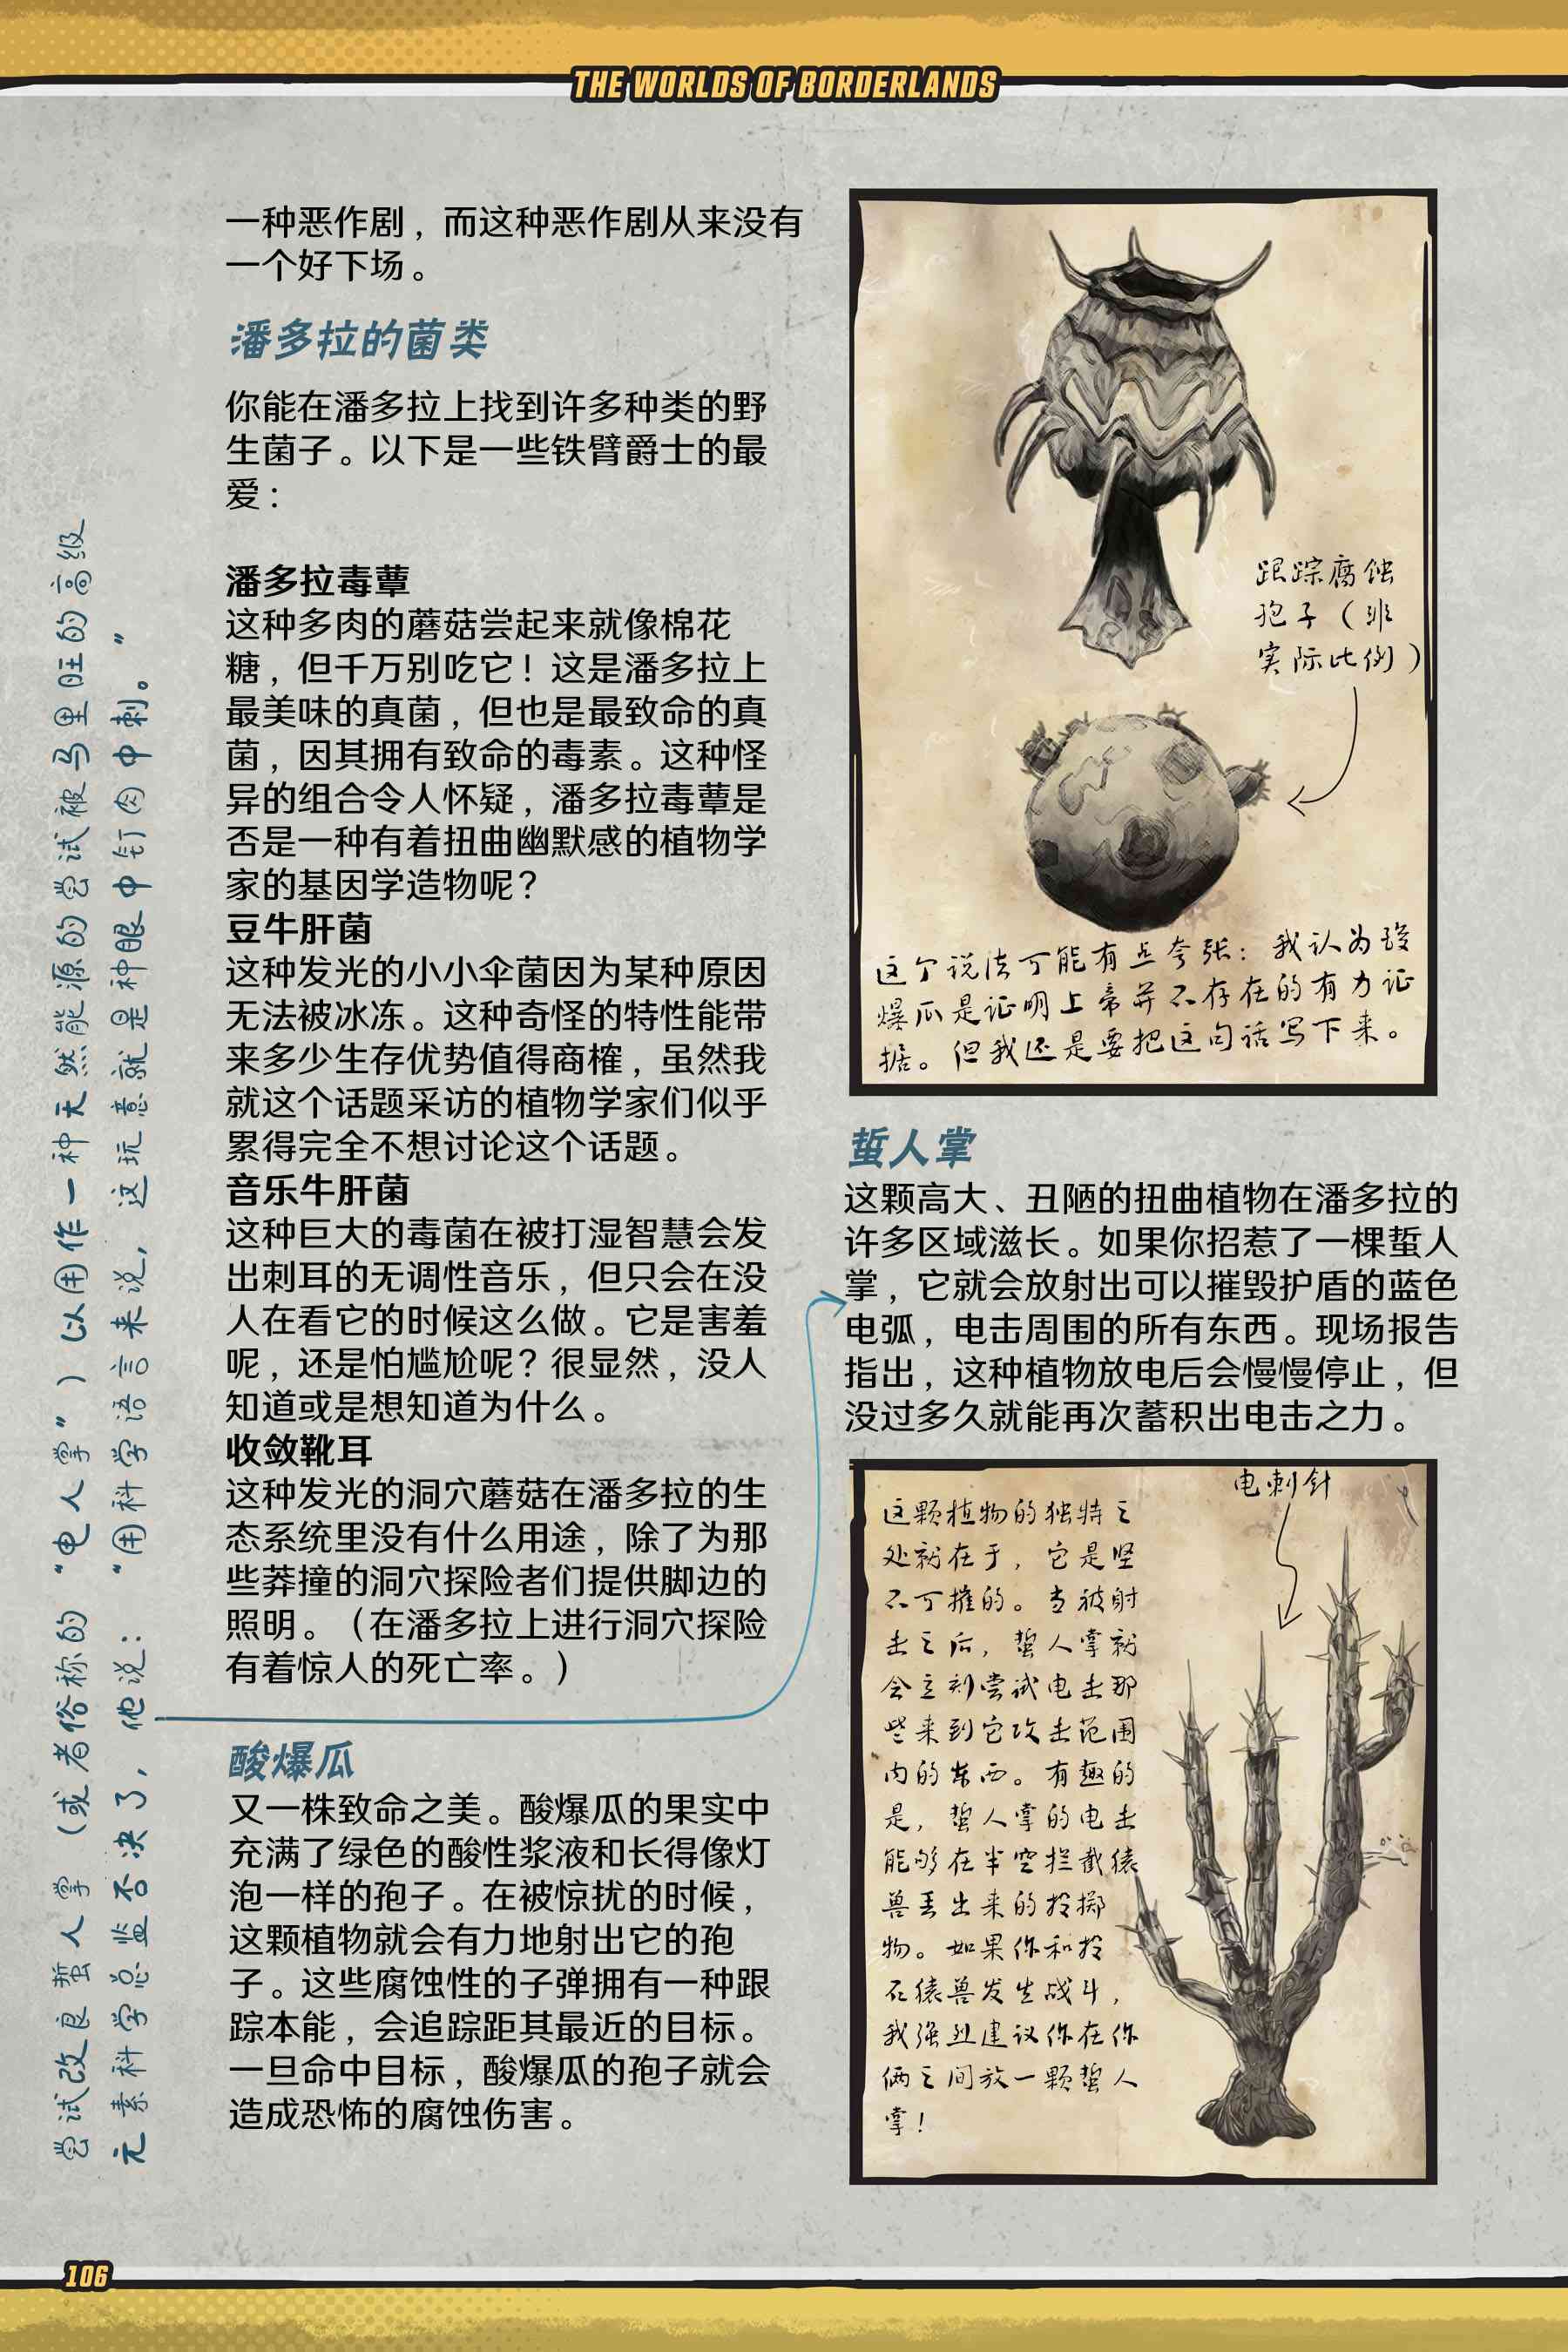 THE WORLDS OF BORDERLANDS
一种恶作剧，而这种恶作剧从来没有
一个好下场。
潘多拉的菌类
你能在潘多拉上找到许多种类的野
生菌子。以下是一些铁臂爵士的最
爱：
潘多拉毒蕈
这种多肉的蘑菇尝起来就像棉花
糖，但千万别吃它！这是潘多拉上
最美味的真菌，但也是最致命的真
菌，因其拥有致命的毒素。这种怪
异的组合令人怀疑，潘多拉毒蕈是
否是一种有着扭曲幽默感的植物学
家的基因学造物呢？
豆牛肝菌
这种发光的小小伞菌因为某种原因
无法被冰冻。这种奇怪的特性能带
来多少生存优势值得商榷，虽然我
就这个话题采访的植物学家们似乎
累得完全不想讨论这个话题。
音乐牛肝菌
这种巨大的毒菌在被打湿智慧会发
出刺耳的无调性音乐，但只会在没
人在看它的时候这么做。它是害羞
呢，还是怕尴尬呢？很显然，没人
知道或是想知道为什么。
收敛靴耳
这种发光的洞穴蘑菇在潘多拉的生
态系统里没有什么用途，除了为那
些莽撞的洞穴探险者们提供脚边的
照明。（在潘多拉上进行洞穴探险
有着惊人的死亡率。）
酸爆瓜
又一株致命之美。酸爆瓜的果实中
充满了绿色的酸性浆液和长得像灯
泡一样的孢子。在被惊扰的时候，
这颗植物就会有力地射出它的孢
子。这些腐蚀性的子弹拥有一种跟
踪本能，会追踪距其最近的目标。
一旦命中目标，酸爆瓜的孢子就会
造成恐怖的腐蚀伤害。
跟踪腐蚀
孢子（非
实际比例）
这个说法可能有点夸张：我认为酸
爆瓜是证明上帝并不存在的有力证
据。但我还是要把这句话写下来。
蜇人掌
这颗高大、丑陋的扭曲植物在潘多拉的
许多区域滋长。如果你招惹了一棵蜇人
掌，它就会放射出可以摧毁护盾的蓝色
电弧，电击周围的所有东西。现场报告
指出，这种植物放电后会慢慢停止，但
没过多久就能再次蓄积出电击之力。
电刺针
这颗植物的独特之
处就在于，它是坚
不可摧的。当被射
击之后，蜇人掌就
会立刻尝试电击那
些来到它攻击范围
内的东西。有趣的
是，蜇人掌的电击
能够在半空拦截猿
兽丢出来的投掷
物。如果你和投
石猿兽发生战斗，
我强烈建议你在你
俩之间放一颗蜇人
掌！
尝试改良蜇人掌（或者俗称的“电人掌”）以用作一种天然能源的尝试被马里旺的高级
元素科学总监否决了，他说：“用科学语言来说，这玩意就是种眼中钉肉中刺。”
106